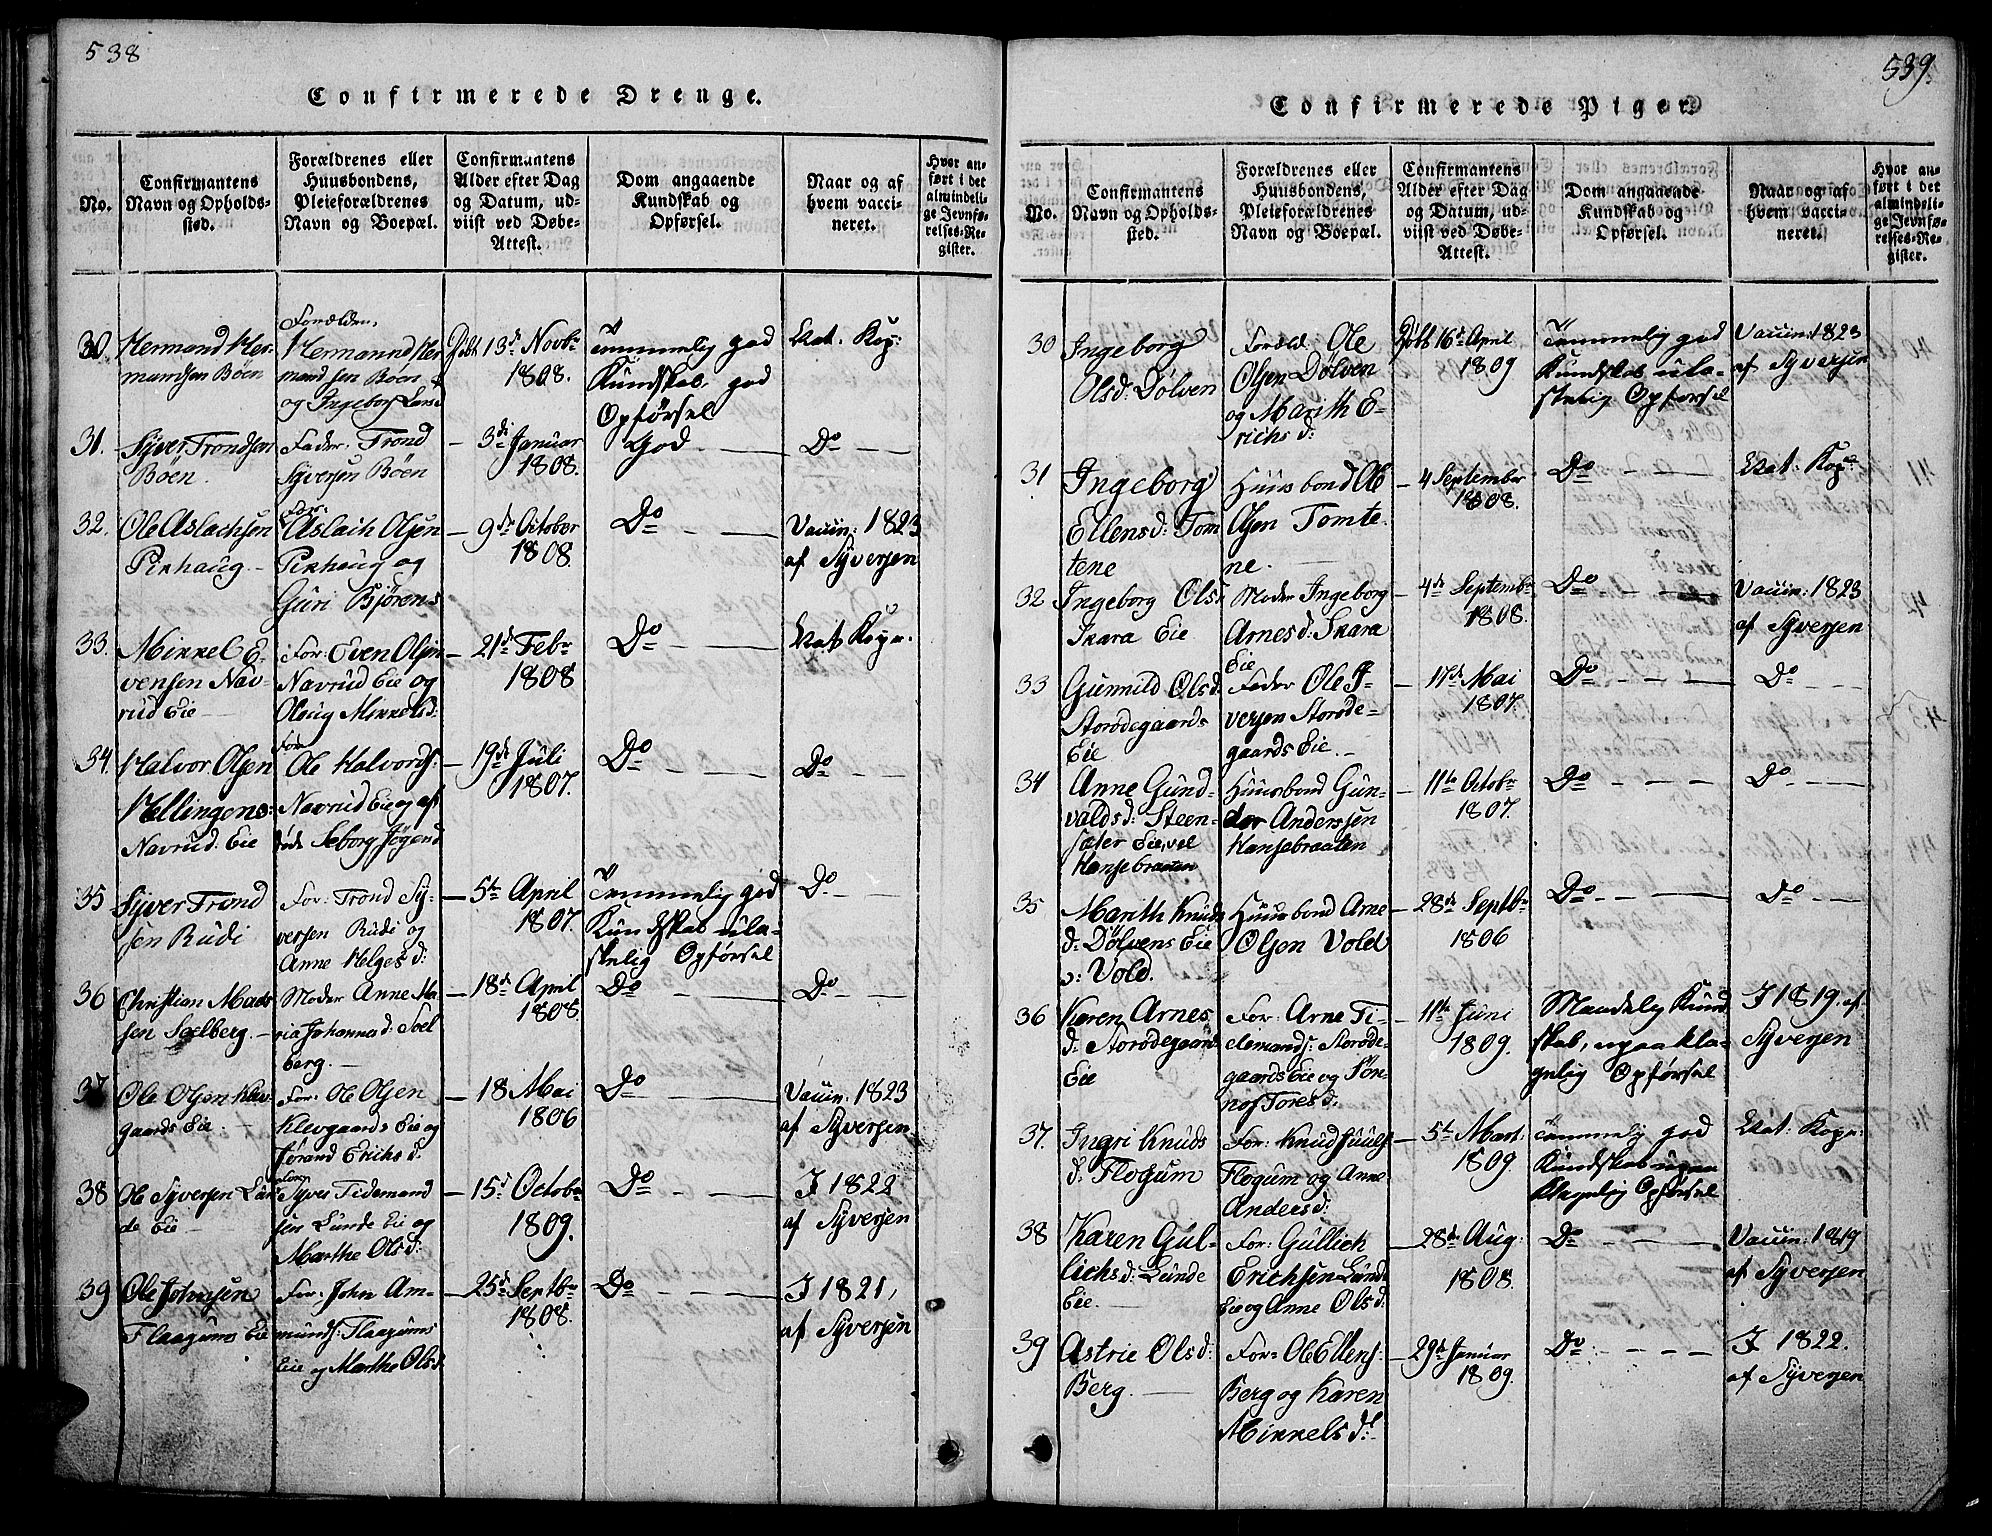 538
Confirmerede Drenge.
No.
Confirmantens
Navn og Opholds-
sted.
Forældrenes eller
Huusbondens,
Pleieforældrenes
Navn og Boepæl.
Confirmantens
Alder efter Dag
og Datum, ud-
viist ved Døbe-
Attest.
Dom angaaende
Kundskab og
Opførsel.
Naar og af
hvem vacci-
neret.
Hvor an-
ført i det
almindeli-
ge Jevnfø-
relses-Re-
gister.
30
Hermand Her-
mandsen Böen
Forældre,
Hermannd Her
mandsen Böen
og Ingeborg Larsd
Döbt 13de Novbr
1808.
Temmelig god
Kundskab, god
Opførsel
Nat. Kop:
31.
Syver Trondsen
Böen.
Fader: Trond
Syversen Böen
3de Januar
1808.
God
Do
32.
Ole Aslachsen
Pirhaug.
For:
Aslach Olsen
Pirhaug og
Guri Bjørens
9de October
1808.
Do
Vaccin: 1823
af Syversen
33.
Mikkel E-
vensen Nav-
rud Eie
For: Even Olsen
Navrud Eie og
Oloug Mikkelsd:
21de Febr
1808
Do
Nat. Kopr.
34.
Halvor Olsen
Hellingens:
Navrud: Eie
For
Ole Halvords:
Navrud Eie og af
døde Seborg Jøgend
19de Juli
1807.
Do
Do
35
Syver Trond
sen Rudi
For: Trond Sy-
versen Rudi og
Anne Helgesd:
5te April
1807.
Temmelig god
Kundskab ula-
stelig Opførsel
Do
36
Christian Mads
sen Soelberg
Moder Anne Ma
ria Johannad: Soel
berg.
18de April
1808.
Do
Do
37
Ole Olsen Klev-
gaards Eie.
For: Ole Olsen
Klevgaards Eie og
Jørand Erichsd.
18 Mai
1806
Do
Vaccin: 1823
af Syversen
38
Ole Syversen Lun
de Eie
For:
Syver Tidemand
sen Lunde Eie og
Marthe Olsd:
15de Octobr
1809.
Do
I 1822
af Syversen
39
Ole Johnsen
Flaagums Eie
For: John Am-
munds: Flaagums
Eie og Marthe Olsd
25de Septbr
1808.
Do
I 1821,
af Syversen
539.
Confirmerede Piger.
No.
Confirmantens
Navn og Opholds-
sted.
Forældrenes eller
Huusbondens,
Pleieforældrenes
Navn og Boepæl.
Confirmantens
Alder efter Dag
og Datum, ud-
viist ved Døbe-
Attest.
Dom angaaende
Kundskab og
Opførsel.
Naar og af
hvem vacci-
neret.
Hvor an-
ført i det
almindeli-
ge Jevnfø-
relses-Re-
gister.
30
Ingeborg
Olsd: Dölven
Foræld. Ole
Olsen Dölven
og Marith E-
richsd:
Döbt 16de April
1809
Temmelig god
Kundskab ula-
stelig Opførsel
Vaccin: 1823
af Syversen
31
Ingeborg
Ellensd: Tom
tene
Huusbond Ole
Olsen Tomte-
ne.
4 September
1808.
Do
Nat: Kopr
32
Ingeborg Olsd
Skara Eie
Moder Ingeborg
Arnesd: Skara
Eie
4de Septembr
1808.
Do
Vaccin: 1823
af Syversen
33
Gunnild Olsd.
Storødegaards
Eie
Fader Ole I-
versen Storøde-
gaards Eie.
17de Mai
1807.
Do
Do
34
Anne Gund-
valdsd: Steen-
sæter Eie, vel
Hansebraaten
Huusbond Gun-
der Anderssen
Hansebraaten
11te Octobr
1807.
Do
Do
35
Marith Knuds
d: Dölvens Eie
v: Vold.
Huusbond Arne
Olsen Vold
28de Septbr
1806
Do
Do
36
Karen Arnes
d: Storødegaard
Eie
For: Arne Ti-
demands: Storøde-
gaards Eie og Rön-
nof Toresd.
11te Juni
1809.
Maadelig Kund
skab, upaakla-
gelig Opførsel
I 1819 af
Syversen
37.
Ingri Knuds
d: Flogum
For: Knud Juuls
Flogum og Anne
Andersd:
5te Mart:
1809.
Temmelig god
Kundskab upaa
klagelig Opførsel
Nat: Kopr:
38
Karen Gul-
lichsd: Lunde
Eie.
For: Gullich
Erichsen Lunde
Eie og Anne Olsd:
28de Aug:
1808.
Do
Vaccin: 1819
af Syversen
39
Astrie Olsd:
Berg.
For: Ole Ellens:
Berg og Karen
Mikkelsd:
29de Januar
1809.
Do
I 1822.
af Syversen